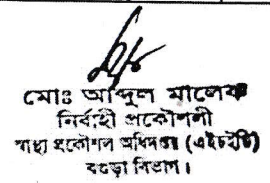 মোঃ আব্দুল মালেক
নির্বাহী প্রকৌশলী
স্বাস্থ্য প্রকৌশল অধিদপ্তর (এইচইডি)
বগুড়া বিভাগ।